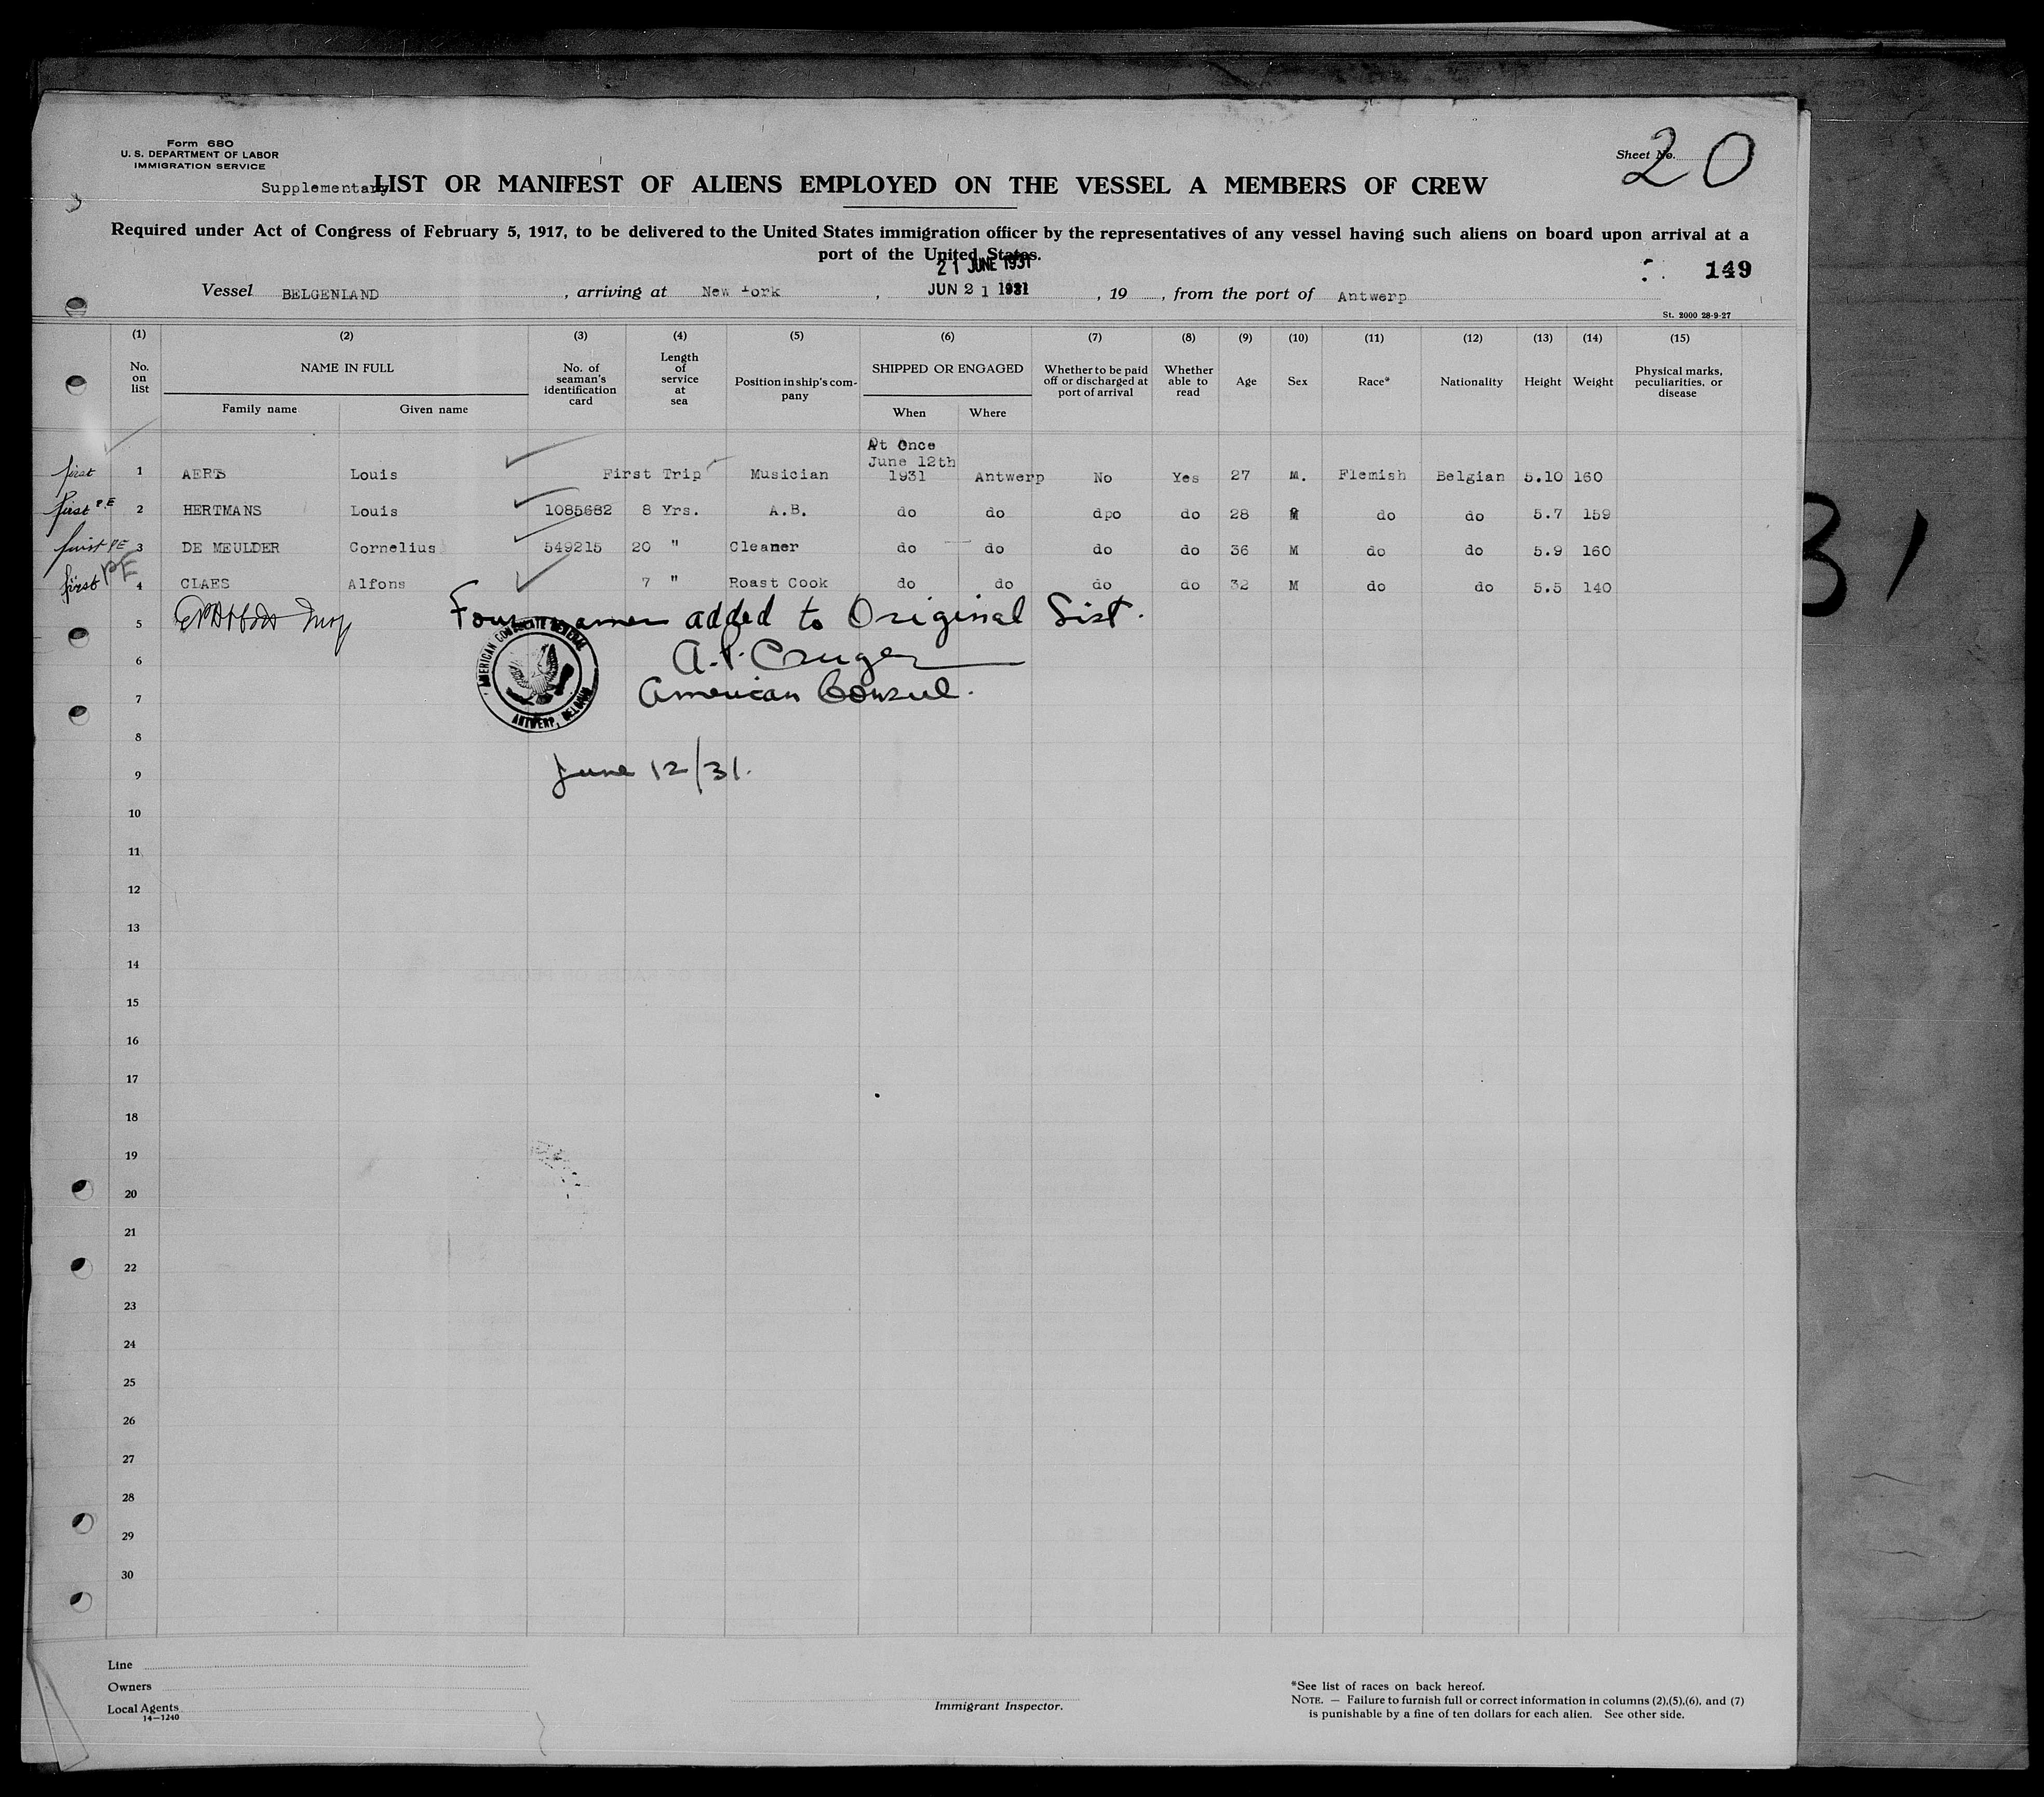 Form 680
U. S. DEPARTMENT OF LABOR
IMMIGRATION SERVICE
Sheet No. 20
Supplementary LIST OR MANIFEST OF ALIENS EMPLOYED ON THE VESSEL A MEMBERS OF CREW
Required under Act of Congress of February 5, 1917, to be delivered to the United States immigration officer by the representatives of any vessel having such aliens on board upon arrival at a
port of the United States.
21 JUNE 1931
149
Vessel BELGENLAND, arriving at New York, JUN 21 1931, 19, from the port of Antwerp
St. 2000 28-9-27
(1) (2) (3) (4) (5) (6) (7) (8) (9) (10) (11) (12) (13) (14) (15)
No. on list
NAME IN FULL
Family name
Given name
No. of seaman's identification card
Length of service at sea
Position in ship's com-pany
SHIPPED OR ENGAGED
When
Where
Whether to be paid off or discharged at port of arrival
Whether able to read
Age
Sex
Race*
Nationality
Height
Weight
Physical marks, peculiarities, or disease
At Once
June 12th
first 1 AERTS Louis First Trip Musician 1931 Antwerp No Yes 27 M. Flemish Belgian 5.10 160
first P.E 2 HERTMANS Louis 1085682 8 Yrs. A.B. do do dpo do 28 M do do 5.7 159
first PE 3 DE MEULDER Cornelius 549215 20 " Cleaner do do do do 36 M do do 5.9 160
first PE 4 CLAES Alfons 7 " Roast Cook do do do do 32 M do do 5.5 140
5
Four names added to Original List.
AMERICAN CONSULATE GENERAL
ANTWERP, BELGIUM
6
A.P. Cruger
American Consul.
7
8
June 12/31.
9
10
11
12
13
14
15
16
17
18
19
20
21
22
23
24
25
26
27
28
29
30
Line
Owners
Local Agents
14—1240
Immigrant Inspector.
*See list of races on back hereof.
NOTE. — Failure to furnish full or correct information in columns (2),(5),(6), and (7)
is punishable by a fine of ten dollars for each alien. See other side.
31